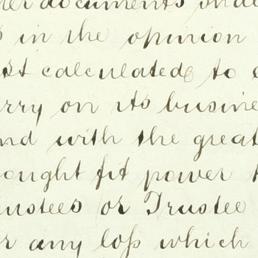 her documents shall
s in the opinion
st calculated to
rry on its busine
nd with the great
ought fit power
ustees or Trustee
r any loſs which